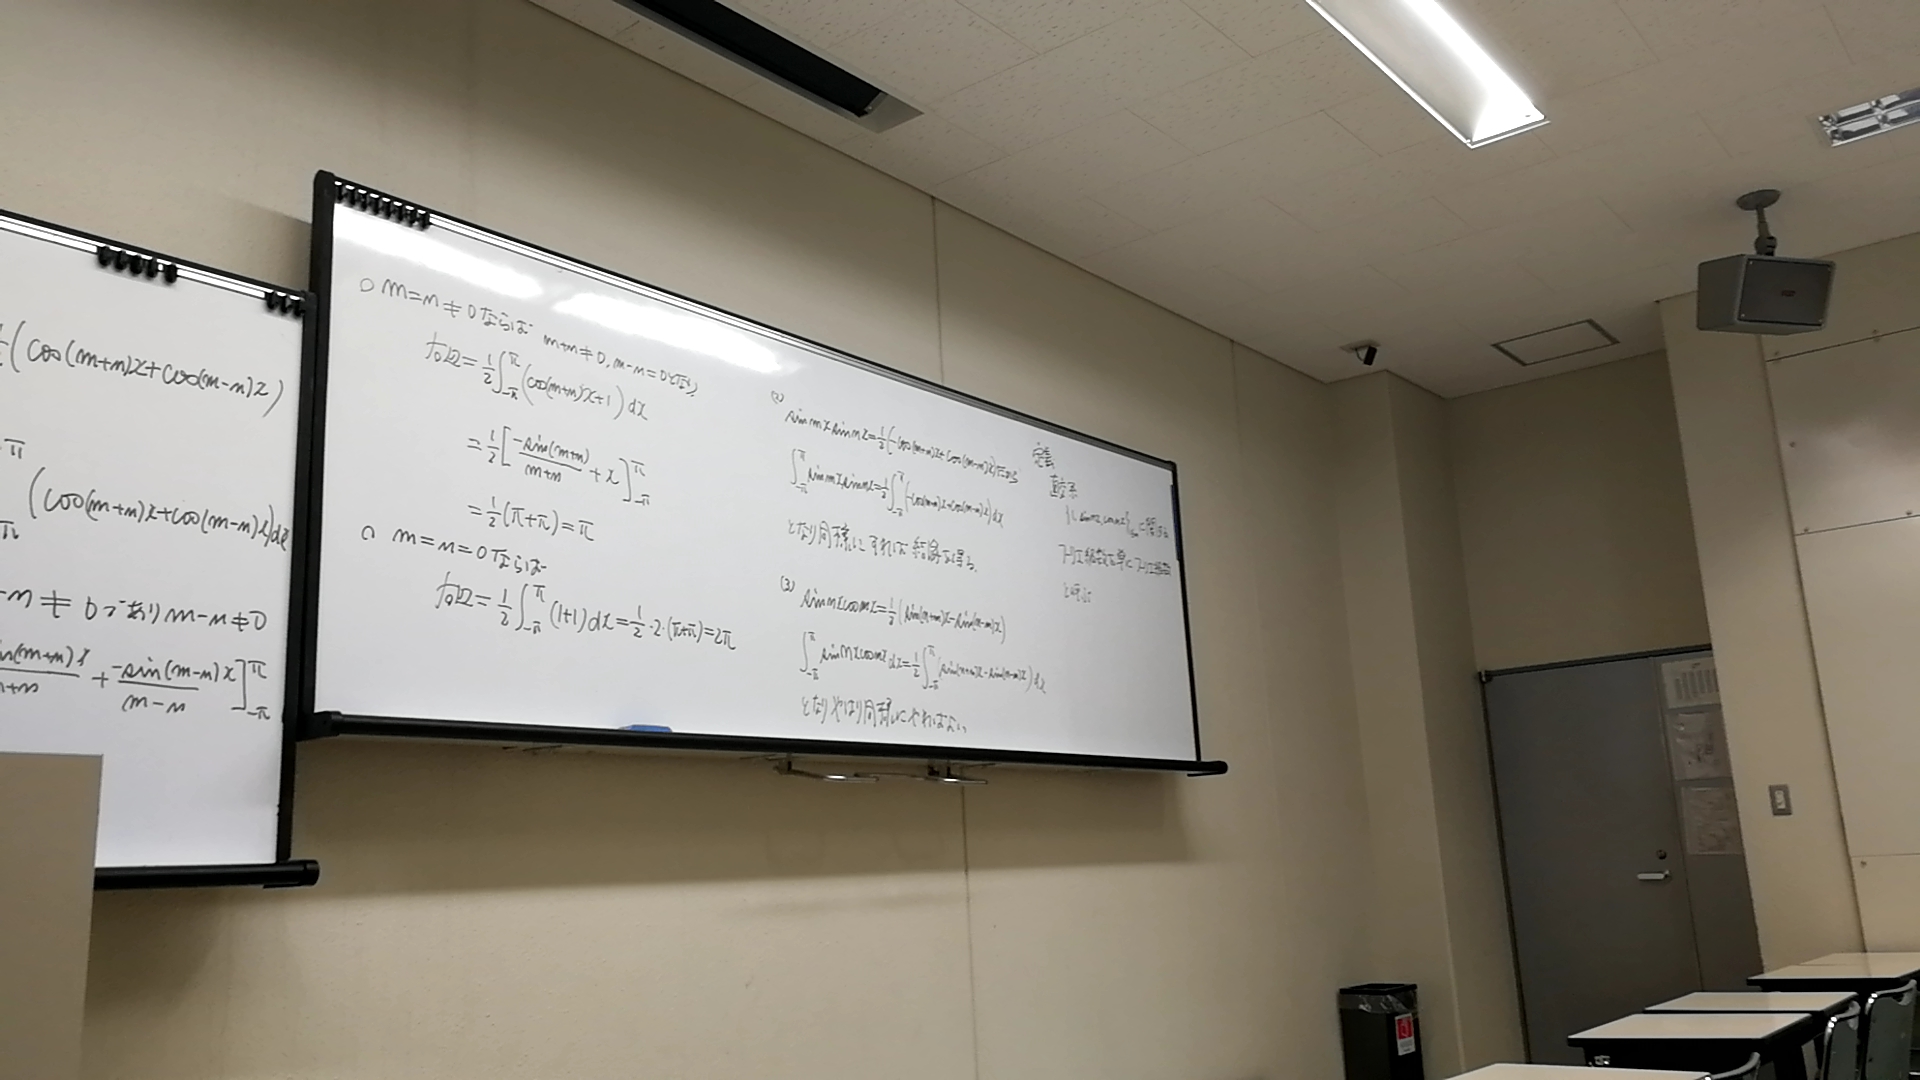 (cos(m+n)x+cos(m-n)x)
π
(cos(m+n)x+cos(m-n)x)dx
-n≠0であり m-n≠0
+ -sin(m-n)x/m-n ]_{-π}^{π}
○ m=n≠0ならば m+n≠0, m-n=0となり、
左辺=1/2∫_{-π}^{π}(cos(m+n)x+1)dx
=1/2[-sin(m+n)/m+n+x]_{-π}^{π}
=1/2(π+π)=π
○ m=n=0ならば
左辺=1/2∫_{-π}^{π}(1+1)dx=1/2・2・(π+π)=2π
(2)
sin mx sin nx=1/2(-cos(m+n)x+cos(m-n)x)だから
∫_{-π}^{π} sin mx sin nx=1/2∫_{-π}^{π}(-cos(m+n)x+cos(m-n)x)dx
となり同様にすれば結論を得る。
(3)
sin nx cos mx=1/2(sin(n+m)x-sin(m-n)x)
∫_{-π}^{π} sin nx cos mx dx=1/2∫_{-π}^{π}(sin(n+m)x-sin(m-n)x)dx
となりやはり同様にやればよい
定義
直交系
{1, sin nx, cos nx} に関する
フーリエ級数を単にフーリエ級数
と呼ぶ